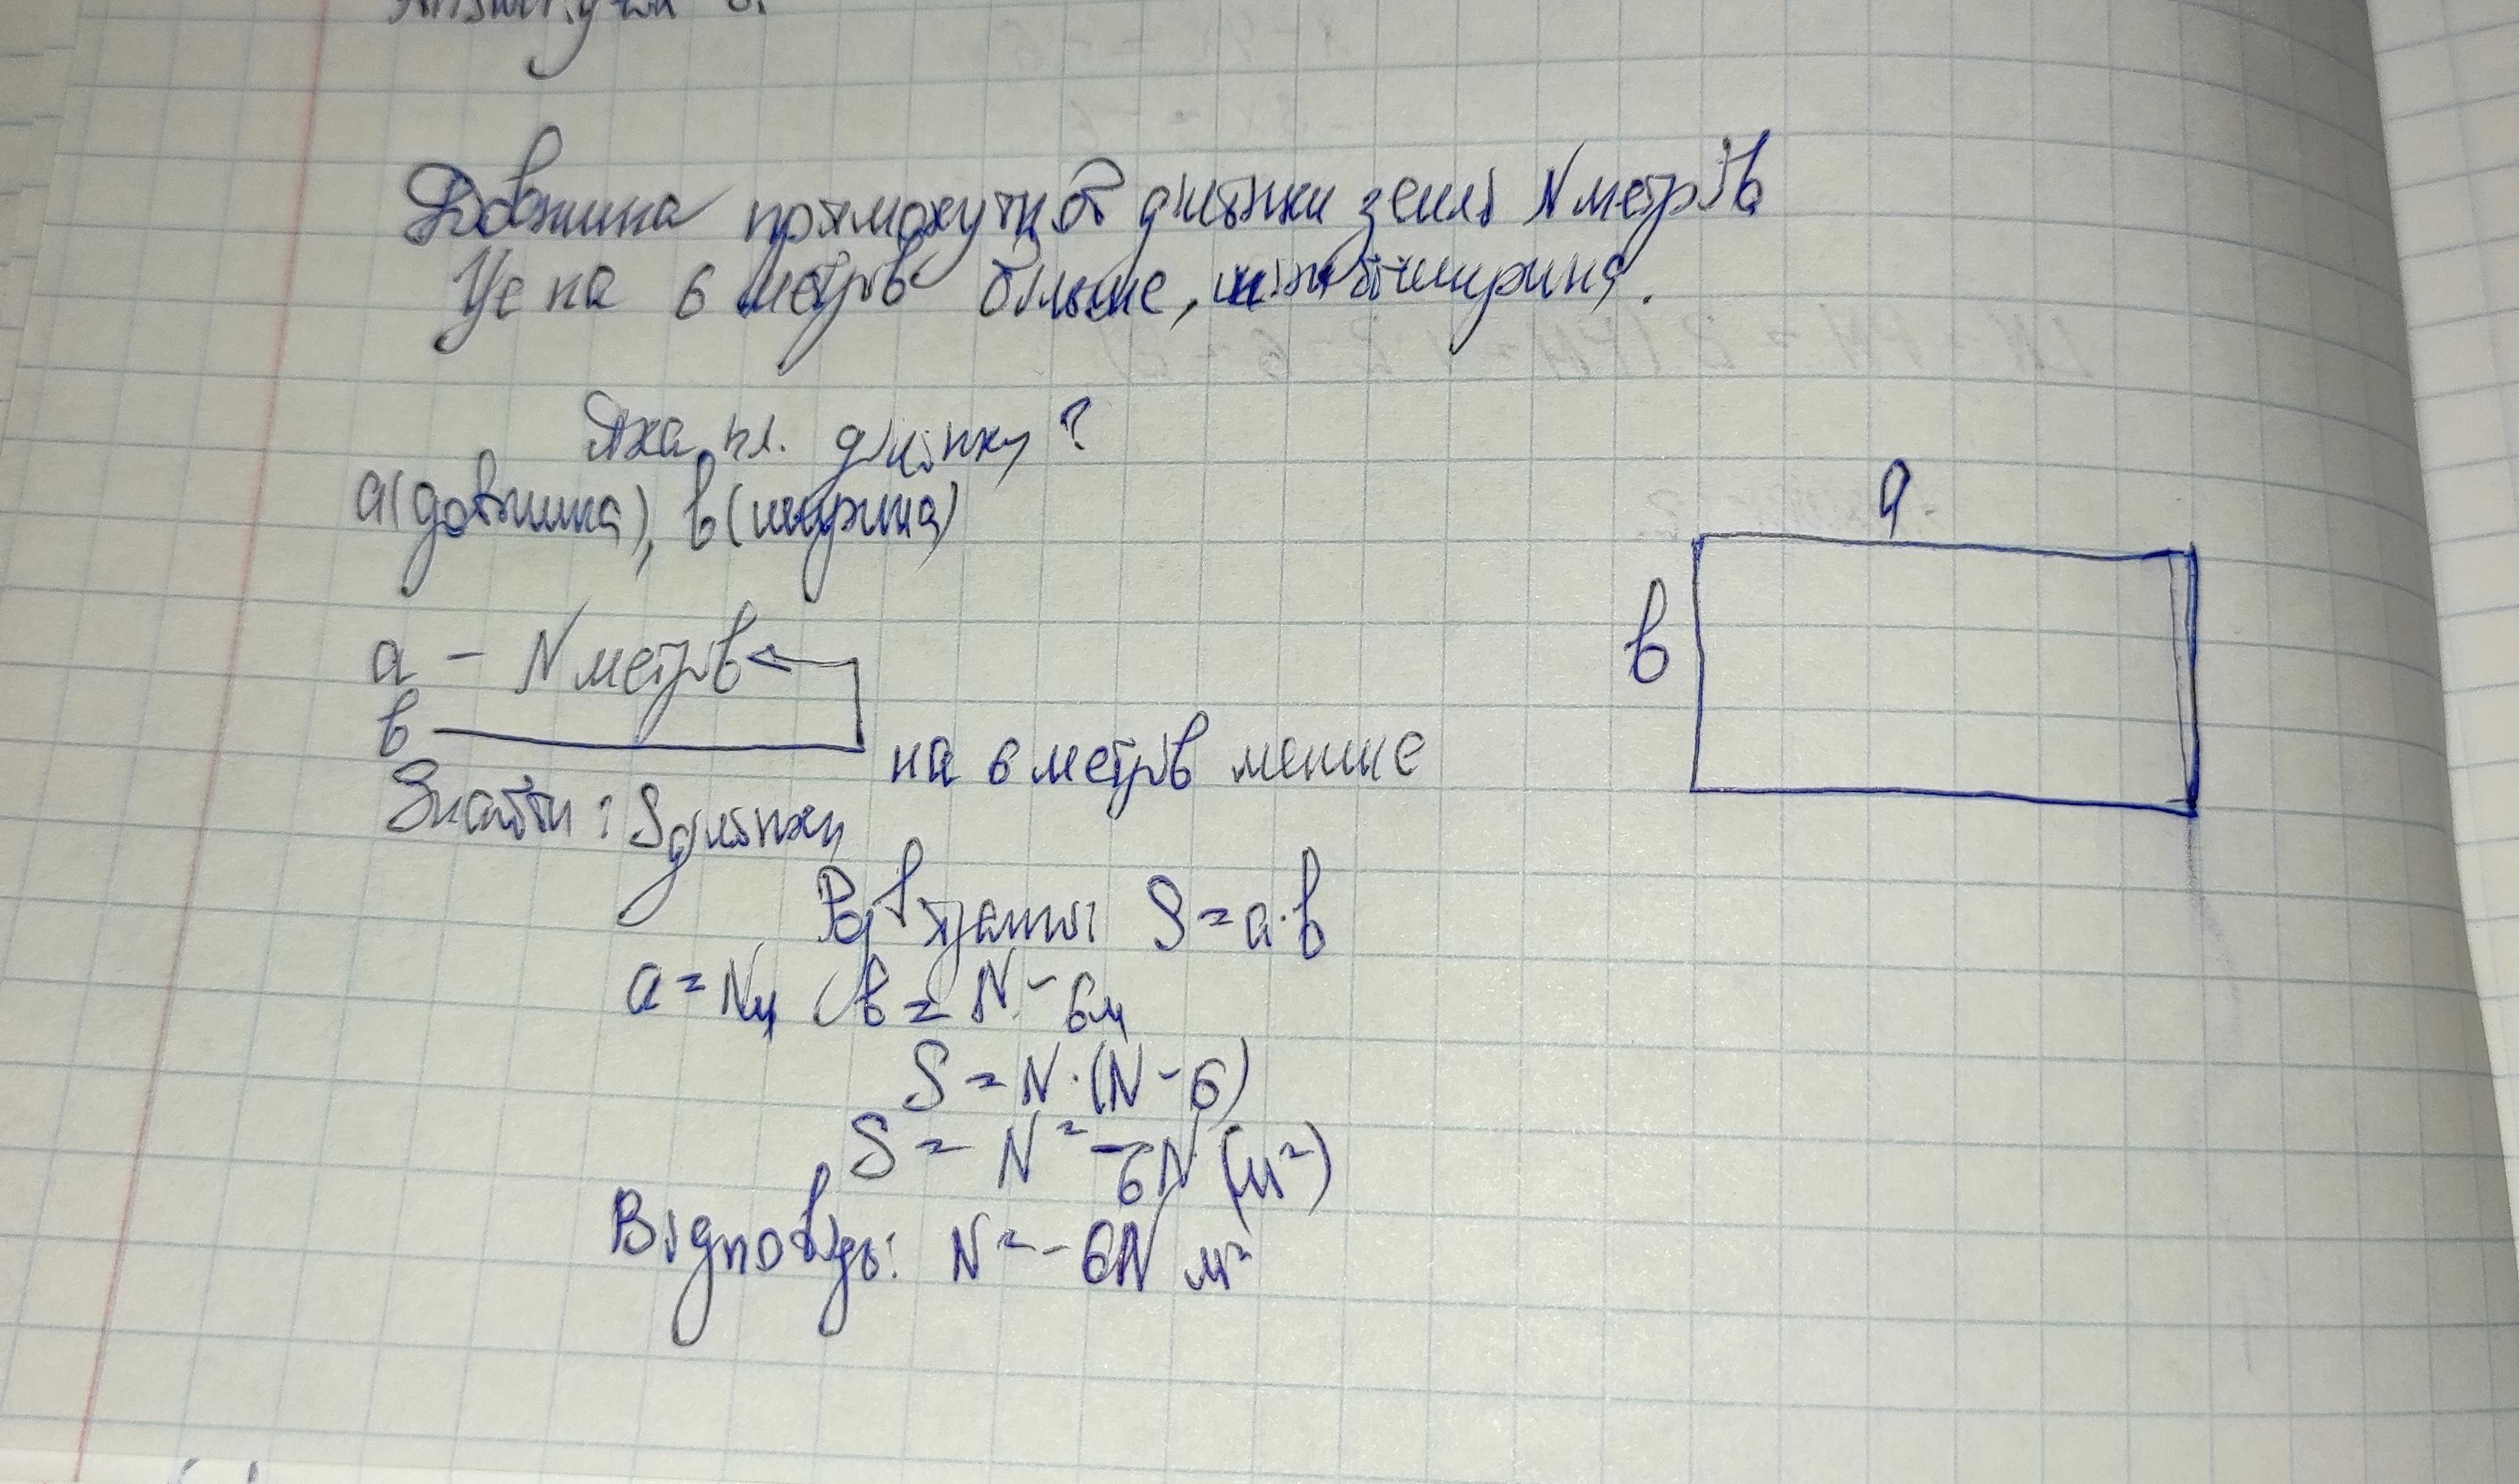 Довжина прямокутної ділянки землі N метрів
Це на 6 метрів більше, ніж її ширина.
Яка пл. ділянки?
a(довжина), b(ширина)
a
b
a - N метрів
b на 6 метрів менше
Знайти: S ділянки
Розв'язання: S = a·b
a = Nм b = N - 6м
S = N·(N-6)
S = N² - 6N (м²)
Відповідь: N² - 6N м²